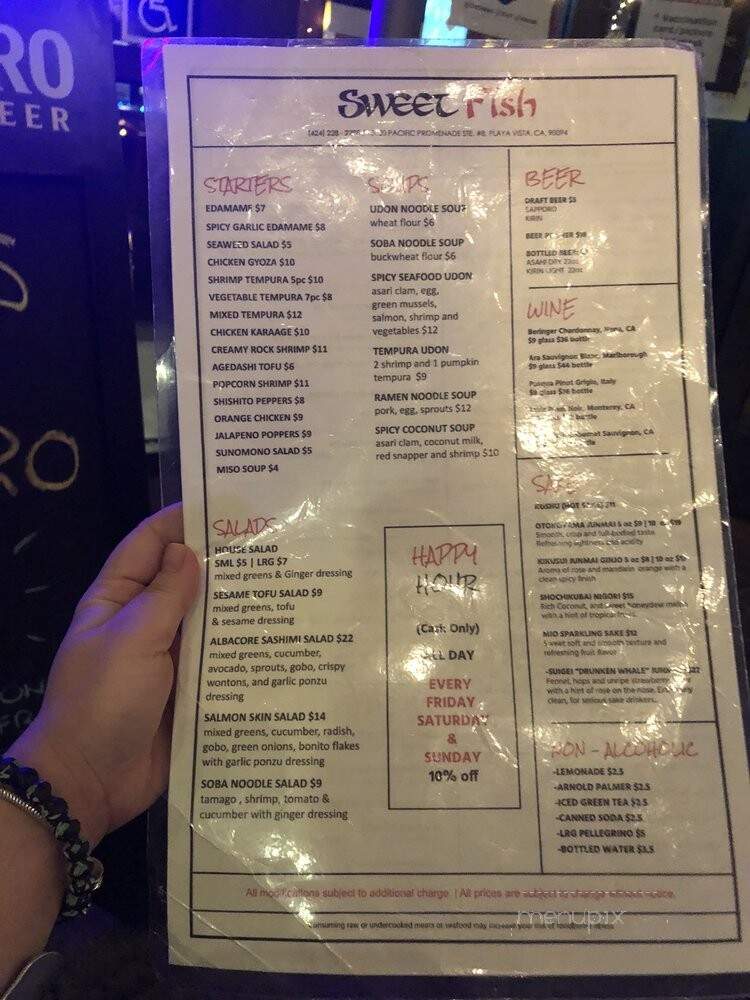 RO
EER
S
RO
Sweet Fish
PACIFIC PROMENADE STE. #8, PLAYA VISTA, CA, 90094
STARTERS
EDAMAME $7
SPICY GARLIC EDAMAME $8
SEAWEED SALAD $5
CHICKEN GYOZA $10
SHRIMP TEMPURA 5pc $10
VEGETABLE TEMPURA 7pc $8
MIXED TEMPURA $12
CHICKEN KARAAGE $10
CREAMY ROCK SHRIMP $11
AGEDASHI TOFU $6
POPCORN SHRIMP $11
SHISHITO PEPPERS $8
ORANGE CHICKEN $9
JALAPENO POPPERS $9
SUNOMONO SALAD $5
MISO SOUP $4
SOUPS
UDON NOODLE SOUP
wheat flour $6
SOBA NOODLE SOUP
buckwheat flour $6
SPICY SEAFOOD UDON
asari clam, egg,
green mussels,
salmon, shrimp and
vegetables $12
TEMPURA UDON
2 shrimp and 1 pumpkin
tempura $9
RAMEN NOODLE SOUP
pork, egg, sprouts $12
SPICY COCONUT SOUP
asari clam, coconut milk,
red snapper and shrimp $10
SALADS
HOUSE SALAD
SML $5 | LRG $7
mixed greens & Ginger dressing
SESAME TOFU SALAD $9
mixed greens, tofu
& sesame dressing
ALBACORE SASHIMI SALAD $22
mixed greens, cucumber,
avocado, sprouts, gobo, crispy
wontons, and garlic ponzu
dressing
SALMON SKIN SALAD $14
mixed greens, cucumber, radish,
gobo, green onions, bonito flakes
with garlic ponzu dressing
SOBA NOODLE SALAD $9
tamago , shrimp, tomato &
cucumber with ginger dressing
HAPPY
HOUR
(Cash Only)
ALL DAY
EVERY
FRIDAY
SATURDAY
&
SUNDAY
10% off
BEER
DRAFT BEER $5
SAPPORO
KIRIN
BEER PITCHER
BOTTLED BEER
ASAHI DRY 22oz
KIRIN LIGHT 22oz
WINE
Beringer Chardonnay, Napa, CA
$9 glass $36 bottle
Ara Sauvignon Blanc, Marlborough
$9 glass $44 bottle
Pinot Grigio, Italy
$9 glass $36 bottle
Noir, Monterey, CA
bottle
Cabernet Sauvignon, CA
bottle
SAKE
(HOT SAKE) $11
OTOKOYAMA JUNMAI 5 oz $9 | 10 oz $19
Smooth, crisp and full-bodied taste
Refreshing lightness and acidity
KIKUSUI JUNMAI GINJO 5 oz $8 | 10 oz
Aroma of rose and mandarin orange with a
clean spicy finish
SHOCHIKUBAI NIGORI $15
Rich Coconut, and sweet honeydew melon
with a hint of tropical
MIO SPARKLING SAKE $12
Sweet soft and smooth texture and
refreshing fruit flavor
-SUIGEI "DRUNKEN WHALE"
Fennel, hops and unripe strawberry
with a hint of rose on the nose.
clean, for serious sake drinkers.
NON - ALCOHOLIC
-LEMONADE $2.5
-ARNOLD PALMER $2.5
-ICED GREEN TEA $2.5
-CANNED SODA $2.5
-LRG PELLEGRINO $5
-BOTTLED WATER $3.5
All modifications subject to additional charge. | All prices are subject to change without notice.
Consuming raw or undercooked meats or seafood may increase your risk of foodborne illness
menupix